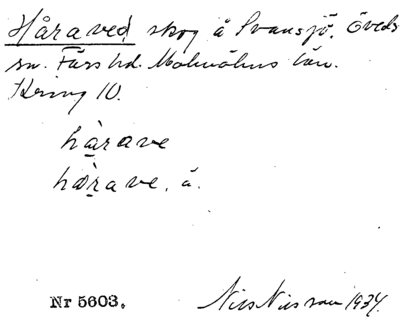 Håraved skog å Svansjö, Öveds
sn. Färs hd. Malmöhus län.
Kring 10.
hàrave
hɷ̀rave, å.
Nr 5603. Nils Nilsson 1934.